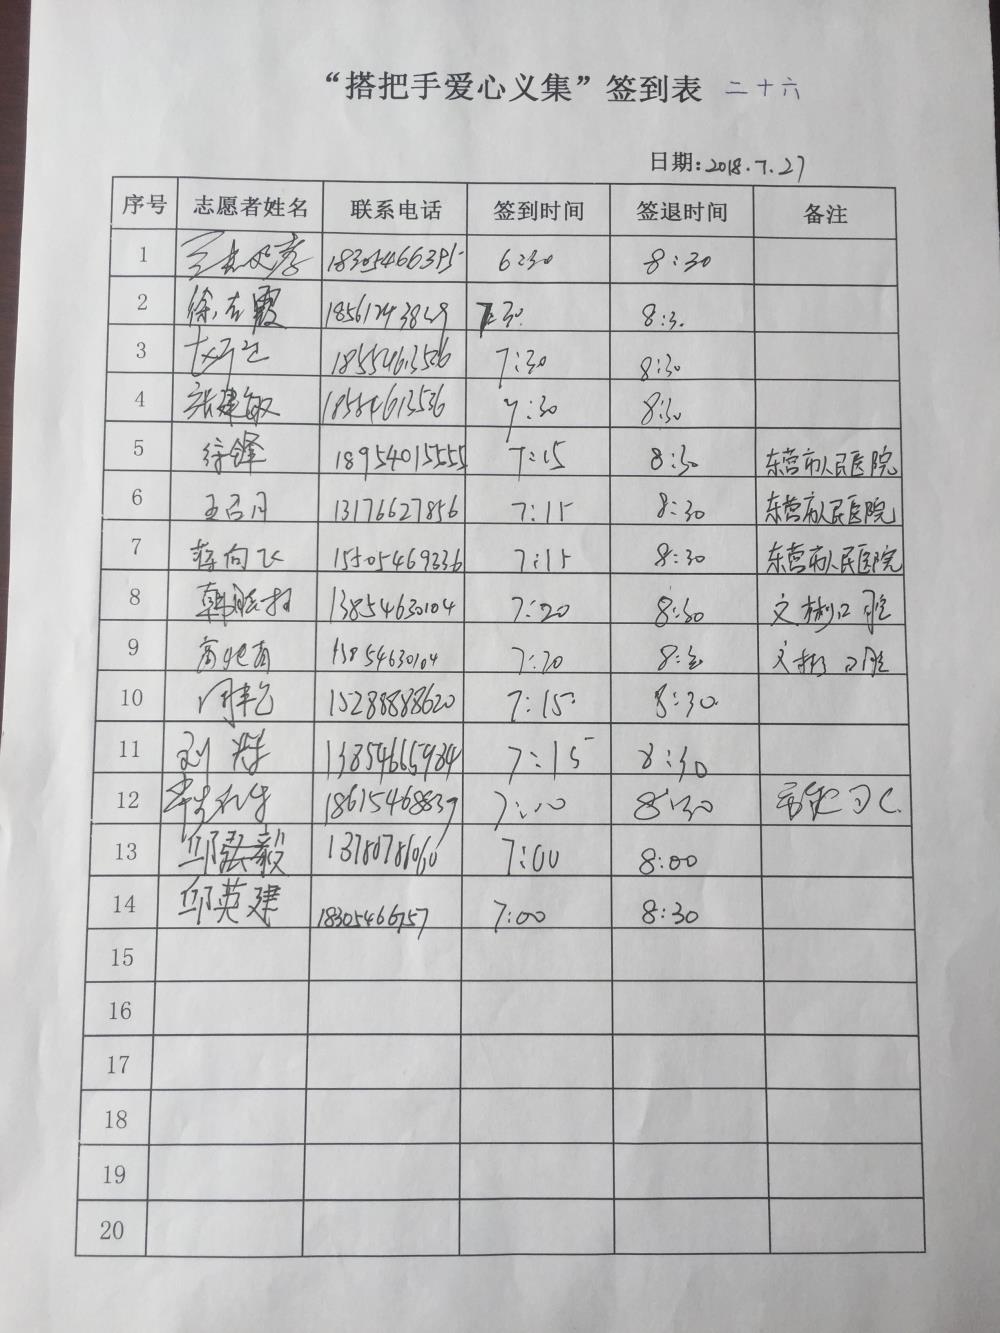 “搭把手爱心义集”签到表 二十六
日期:2018.7.27
序号 志愿者姓名 联系电话 签到时间 签退时间 备注
1 18305466395 6:30 8:30
2 徐志霞 7:30 8:3
3 7:30 8:30
4 张建敏 18554613536 7:30 8:30
5 徐锋 18954015555 7:15 8:30 东营市人民医院
6 王召月 13176627856 7:15 8:30 东营市人民医院
7 蒋向飞 15505469336 7:15 8:30 东营市人民医院
8 13854630104 7:20 8:30 文彬口腔
9 13854630104 7:20 8:30 文彬口腔
10 15288888620 7:15 8:30
11 刘 13854665984 7:15 8:30
12 18615468839 7:00 8:30
13 邱张毅 13780786060 7:00 8:00
14 邱英建 18305466757 7:00 8:30
15
16
17
18
19
20